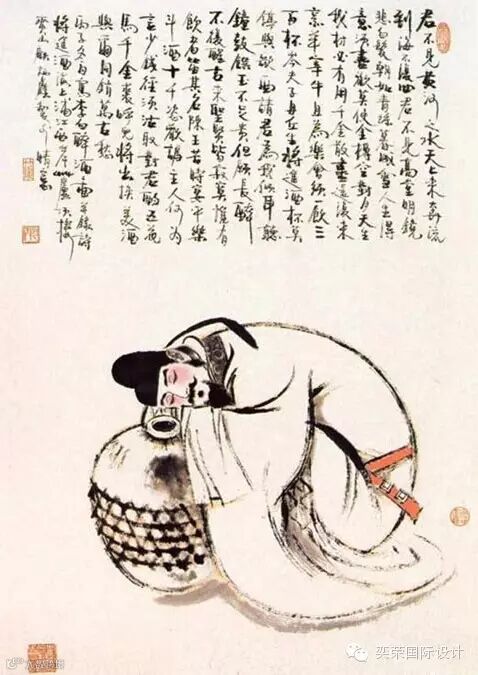 君不見黃河之水天上來奔流
到海不復回君不見高堂明鏡
悲白髮朝如青絲暮成雪人生得
意須盡歡莫使金樽空對月天生
我材必有用千金散盡還復來
烹羊宰牛且為樂會須一飲三
百杯岑夫子丹丘生將進酒杯莫
停與歌一曲請君為我傾耳聽
鐘鼓饌玉不足貴但願長醉
不復醒古來聖賢皆寂寞惟有
飲者留其名陳王昔時宴平樂
斗酒十千恣歡謔主人何為
言少錢徑須沽取對君酌五花
馬千金裘呼兒將出換美酒
與爾同銷萬古愁
寫李白醉酒圖並錄詩
將進酒於上
奕荣国际设计